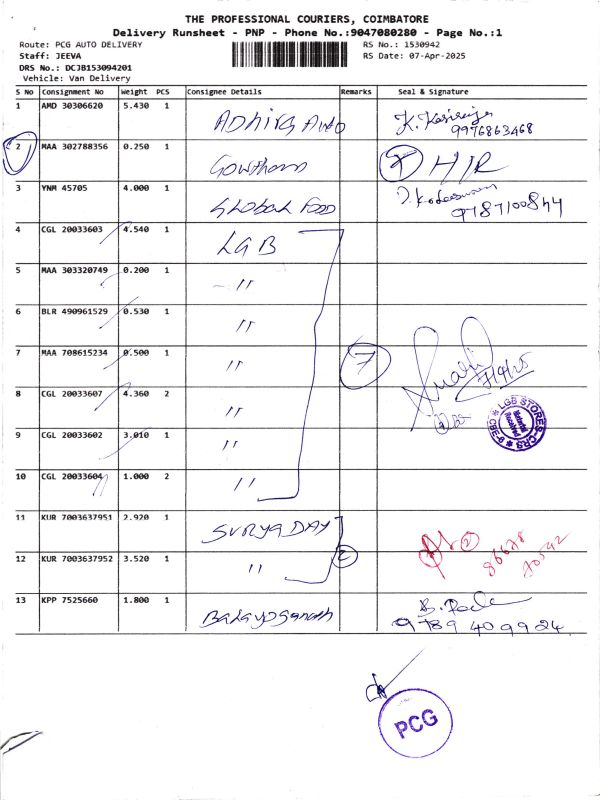 THE PROFESSIONAL COURIERS, COIMBATORE
Delivery Runsheet - PNP - Phone No.:9047080280 - Page No.:1
Route: PCG AUTO DELIVERY RS No.: 1530942
Staff: JEEVA RS Date: 07-Apr-2025
DRS No.: DCJB153094201
Vehicle: Van Delivery
S No Consignment No Weight PCS Consignee Details Remarks Seal & Signature
1 AMD 30306620 5.430 1 Adhirg Auto
9976863468
2 MAA 302788356 0.250 1 Gowtham
3 YNM 45705 4.000 1 Global Food
9787100844
4 CGL 20033603 4.540 1 LGB
5 MAA 303320749 0.200 1 "
6 BLR 490961529 0.530 1 "
7 MAA 708615234 0.500 1 " 7 7/4/25
8 CGL 20033607 4.360 2 "
LGB STORES-CRS
CBE-6
Material Received
9 CGL 20033602 3.010 1 "
10 CGL 20033604 1.000 2 "
11 KUR 7003637951 2.920 1 SURYADAY
2 86678 70592
12 KUR 7003637952 3.520 1 " 2
13 KPP 7525660 1.800 1
9789409924
PCG